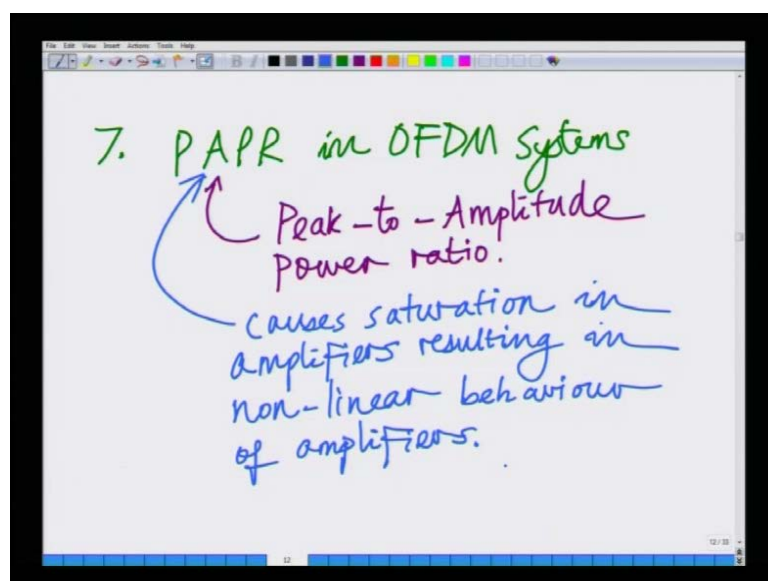 File Edit View Insert Actions Tools Help
7. PAPR in OFDM Systems
Peak-to-Amplitude
power ratio.
causes saturation in
amplifiers resulting in
non-linear behaviour
of amplifiers.
12/33
12